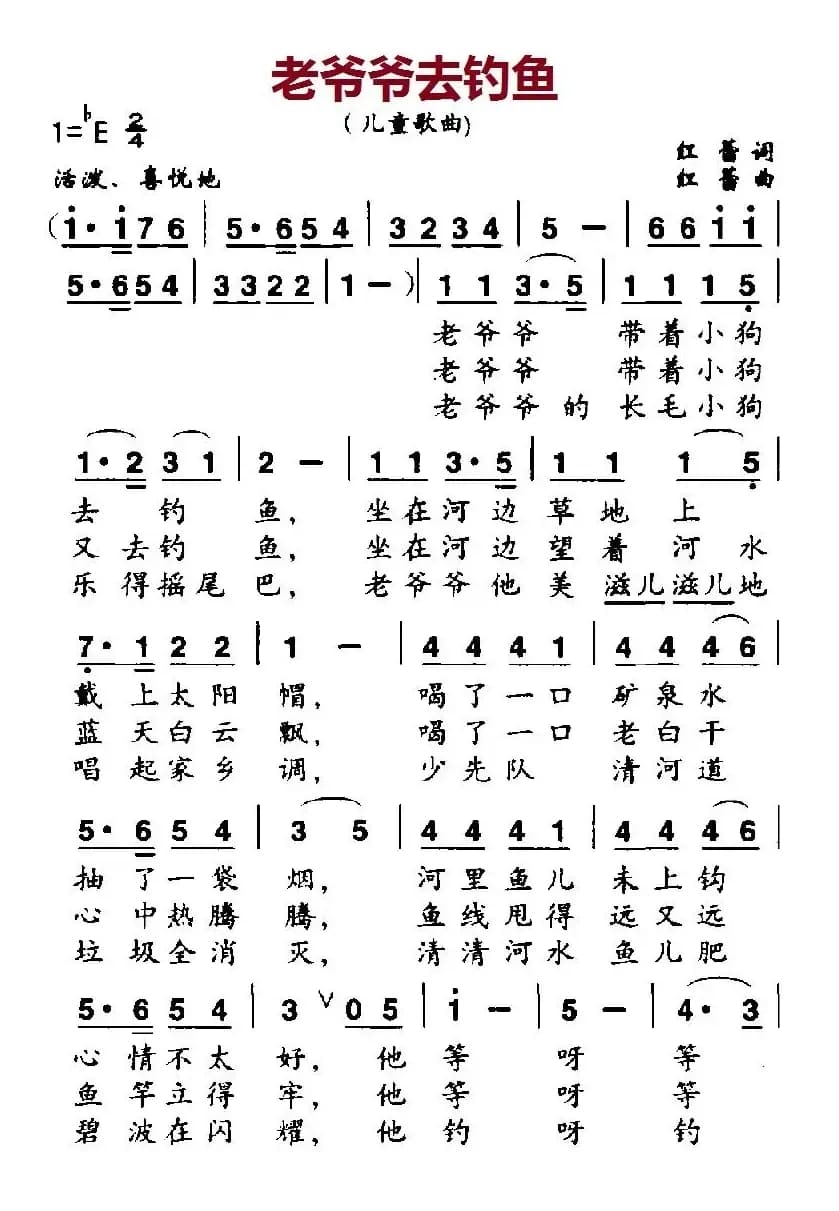 老爷爷去钓鱼
（儿童歌曲）
1=♭E 2/4
红蕾 词
活泼、喜悦地
红蕾 曲
(i·i76 | 5·654 | 3234 | 5 – | 66ii |
5·654 | 3322 | 1 – ) | 11 3·5 | 11 15 |
老爷爷 带着小狗
老爷爷 带着小狗
老爷爷的 长毛小狗
1·2 31 | 2 – | 11 3·5 | 11 1 5 |
去 钓 鱼， 坐在河边草地上
又去钓 鱼， 坐在河边望着河水
乐得摇尾巴， 老爷爷他美滋儿滋儿地
7·1 22 | 1 – | 44 41 | 44 46 |
戴上太阳帽， 喝了一口矿泉水
蓝天白云飘， 喝了一口老白干
唱起家乡调， 少先队 清河道
5·6 54 | 3 5 | 44 41 | 44 46 |
抽了一袋烟， 河里鱼儿未上钩
心中热腾腾， 鱼线甩得远又远
垃圾全消灭， 清清河水鱼儿肥
5·6 54 | 3 ∨ 05 | i – | 5 – | 4· 3 |
心情不太好， 他等呀等
鱼竿立得牢， 他等呀等
碧波在闪耀， 他钓呀钓